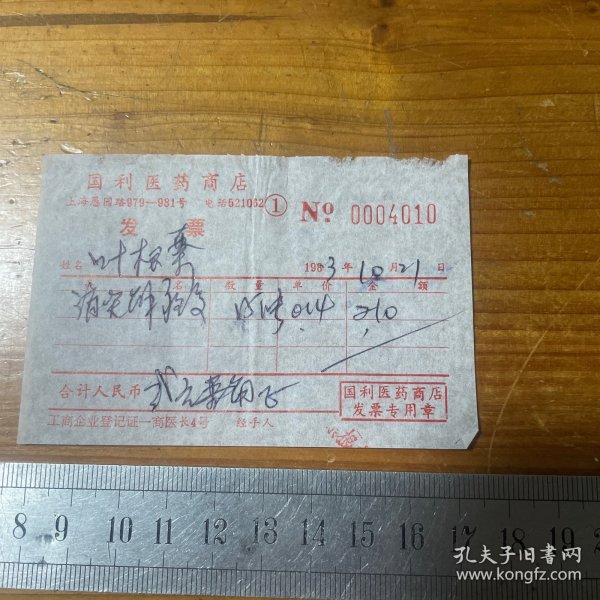 国利医药商店
上海愚园路979—981号 电话521062 ① № 0004010
发票
姓名 叶根 1983年10月21日
名 数量 单价 金额
15 0.14 2.10
合计人民币 弍元
国利医药商店
发票专用章
工商企业登记证一商医长4号 经手人
8 9 10 11 12 13 14 15 16 17 18 19 2
孔夫子旧书网
www.kongfz.com